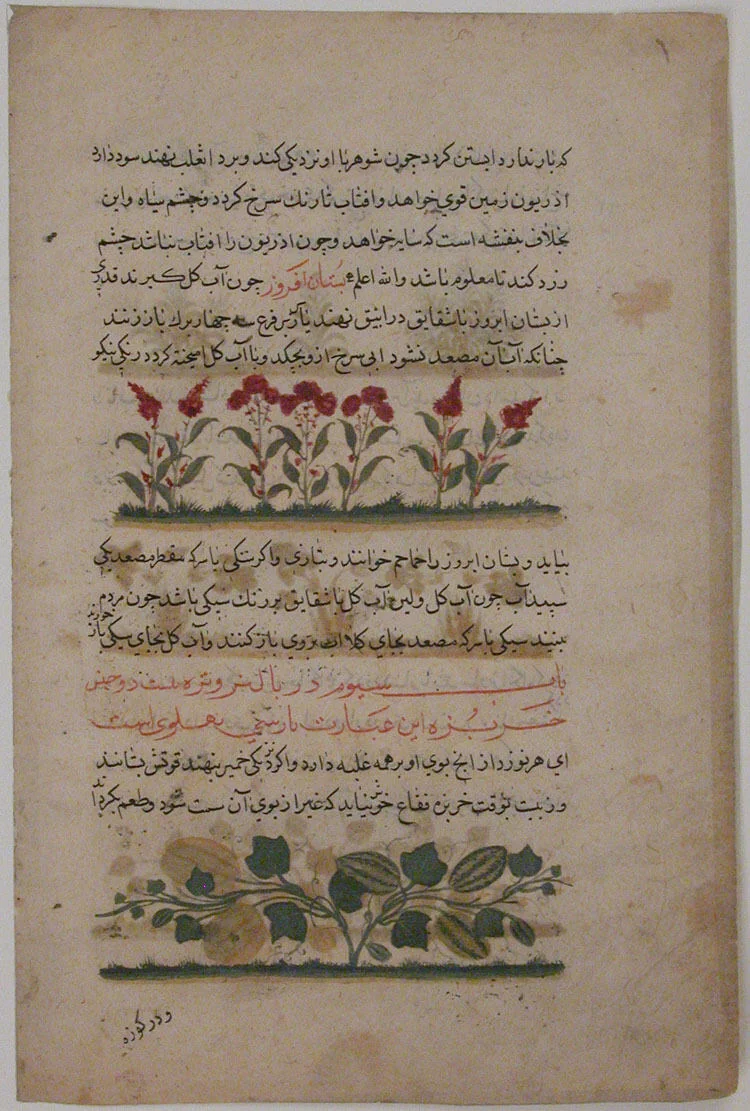 که بار ندارد ابستن کردد چون شوهر با او نزدیکی کند و برد اثعلب نهند سود دارد
اذریون زمین قوي خواهد و افتاب تا رنك سرخ کردد و چشم سیاه و این
بخلاف بنفشه است که سایه خواهد و چون اذریون را افتاب نباشد چشم
زرد کند تا معلوم باشد والله اعلم بستان افروز چون آب کل کیرند قدري
از بستان ابروز با شقایق در انبیق نهند بر سر قرع سه چهار برك باز زنند
چنانکه آب آن مصعد نشود ابی سرخ از و بچکد و با آب کل امیخته کردد رنکی نیکو
بیاید و بستان ابروز را حماحم خوانند و بتازی و اکر تنکی با سرکه مقطر مصعد یکی
سپید آب چون آب کل و لیس آب کل با شقایق برنك سیکی باشد چون مردم
ببیند سیکی با سرکه مصعد بجاي کلاب بروي باز کنند و آب کل بجاي سیکی باز خورند
باب سیوم در پالیز و تره است دو جنس
خربزه این عبارت پارسی پهلوي است
اي هر نوزد از انج بوي او بر همه غلبه دارد و اکر در یکی خمیر بنهند قوتش بستانند
و زیت بوقت خربزه فقاع خوش نیاید که غیر از بوي آن سست شود و طعم بکرداند
و در کوزه